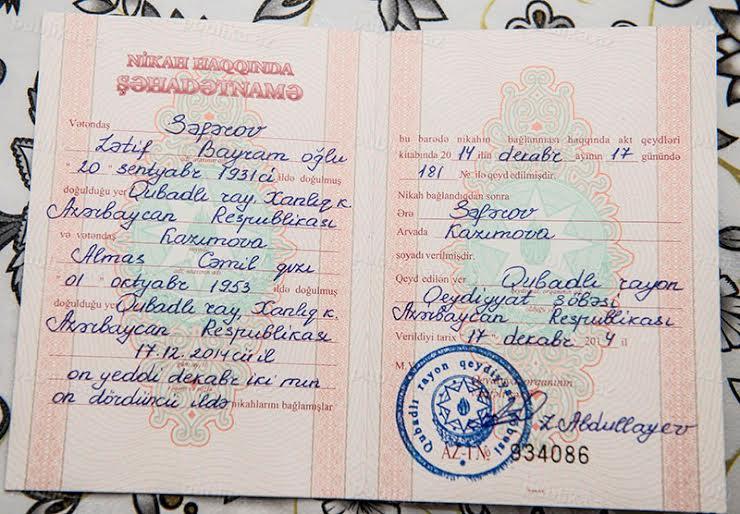 NİKAH HAQQINDA
ŞƏHADƏTNAMƏ
Vətəndaş Səfərov
Lətif Bayram oğlu
"20" sentyabr 1931ci ildə doğulmuş
doğulduğu yer Qubadlı ray, Xanlıq k.
Azərbaycan Respublikası
və vətəndaş Kazımova
Almaz Cəmil qızı
"01" oktyabr 1953 ildə doğulmuş
doğulduğu yer Qubadlı ray, Xanlıq k.
Azərbaycan Respublikası
17.12.2014cü il
on yeddi dekabr iki min
on dördüncü ildə nikahlarını bağlamışlar
bu barədə nikahın bağlanması haqqında akt qeydləri
kitabında 2014 ilin dekabr ayının 17 günündə
181 № ilə qeyd edilmişdir.
Nikah bağlandıqdan sonra
Ərə Səfərov
Arvada Kazımova
soyadı verilmişdir.
Qeyd edilən yer Qubadlı rayon
Qeydiyyat şöbəsi
Azərbaycan Respublikası
Verildiyi tarix "17" dekabr 2014 il
M.Y.
Qubadlı rayon qeydiyyat şöbəsi
Z.Abdullayev
AZ-I № 934086